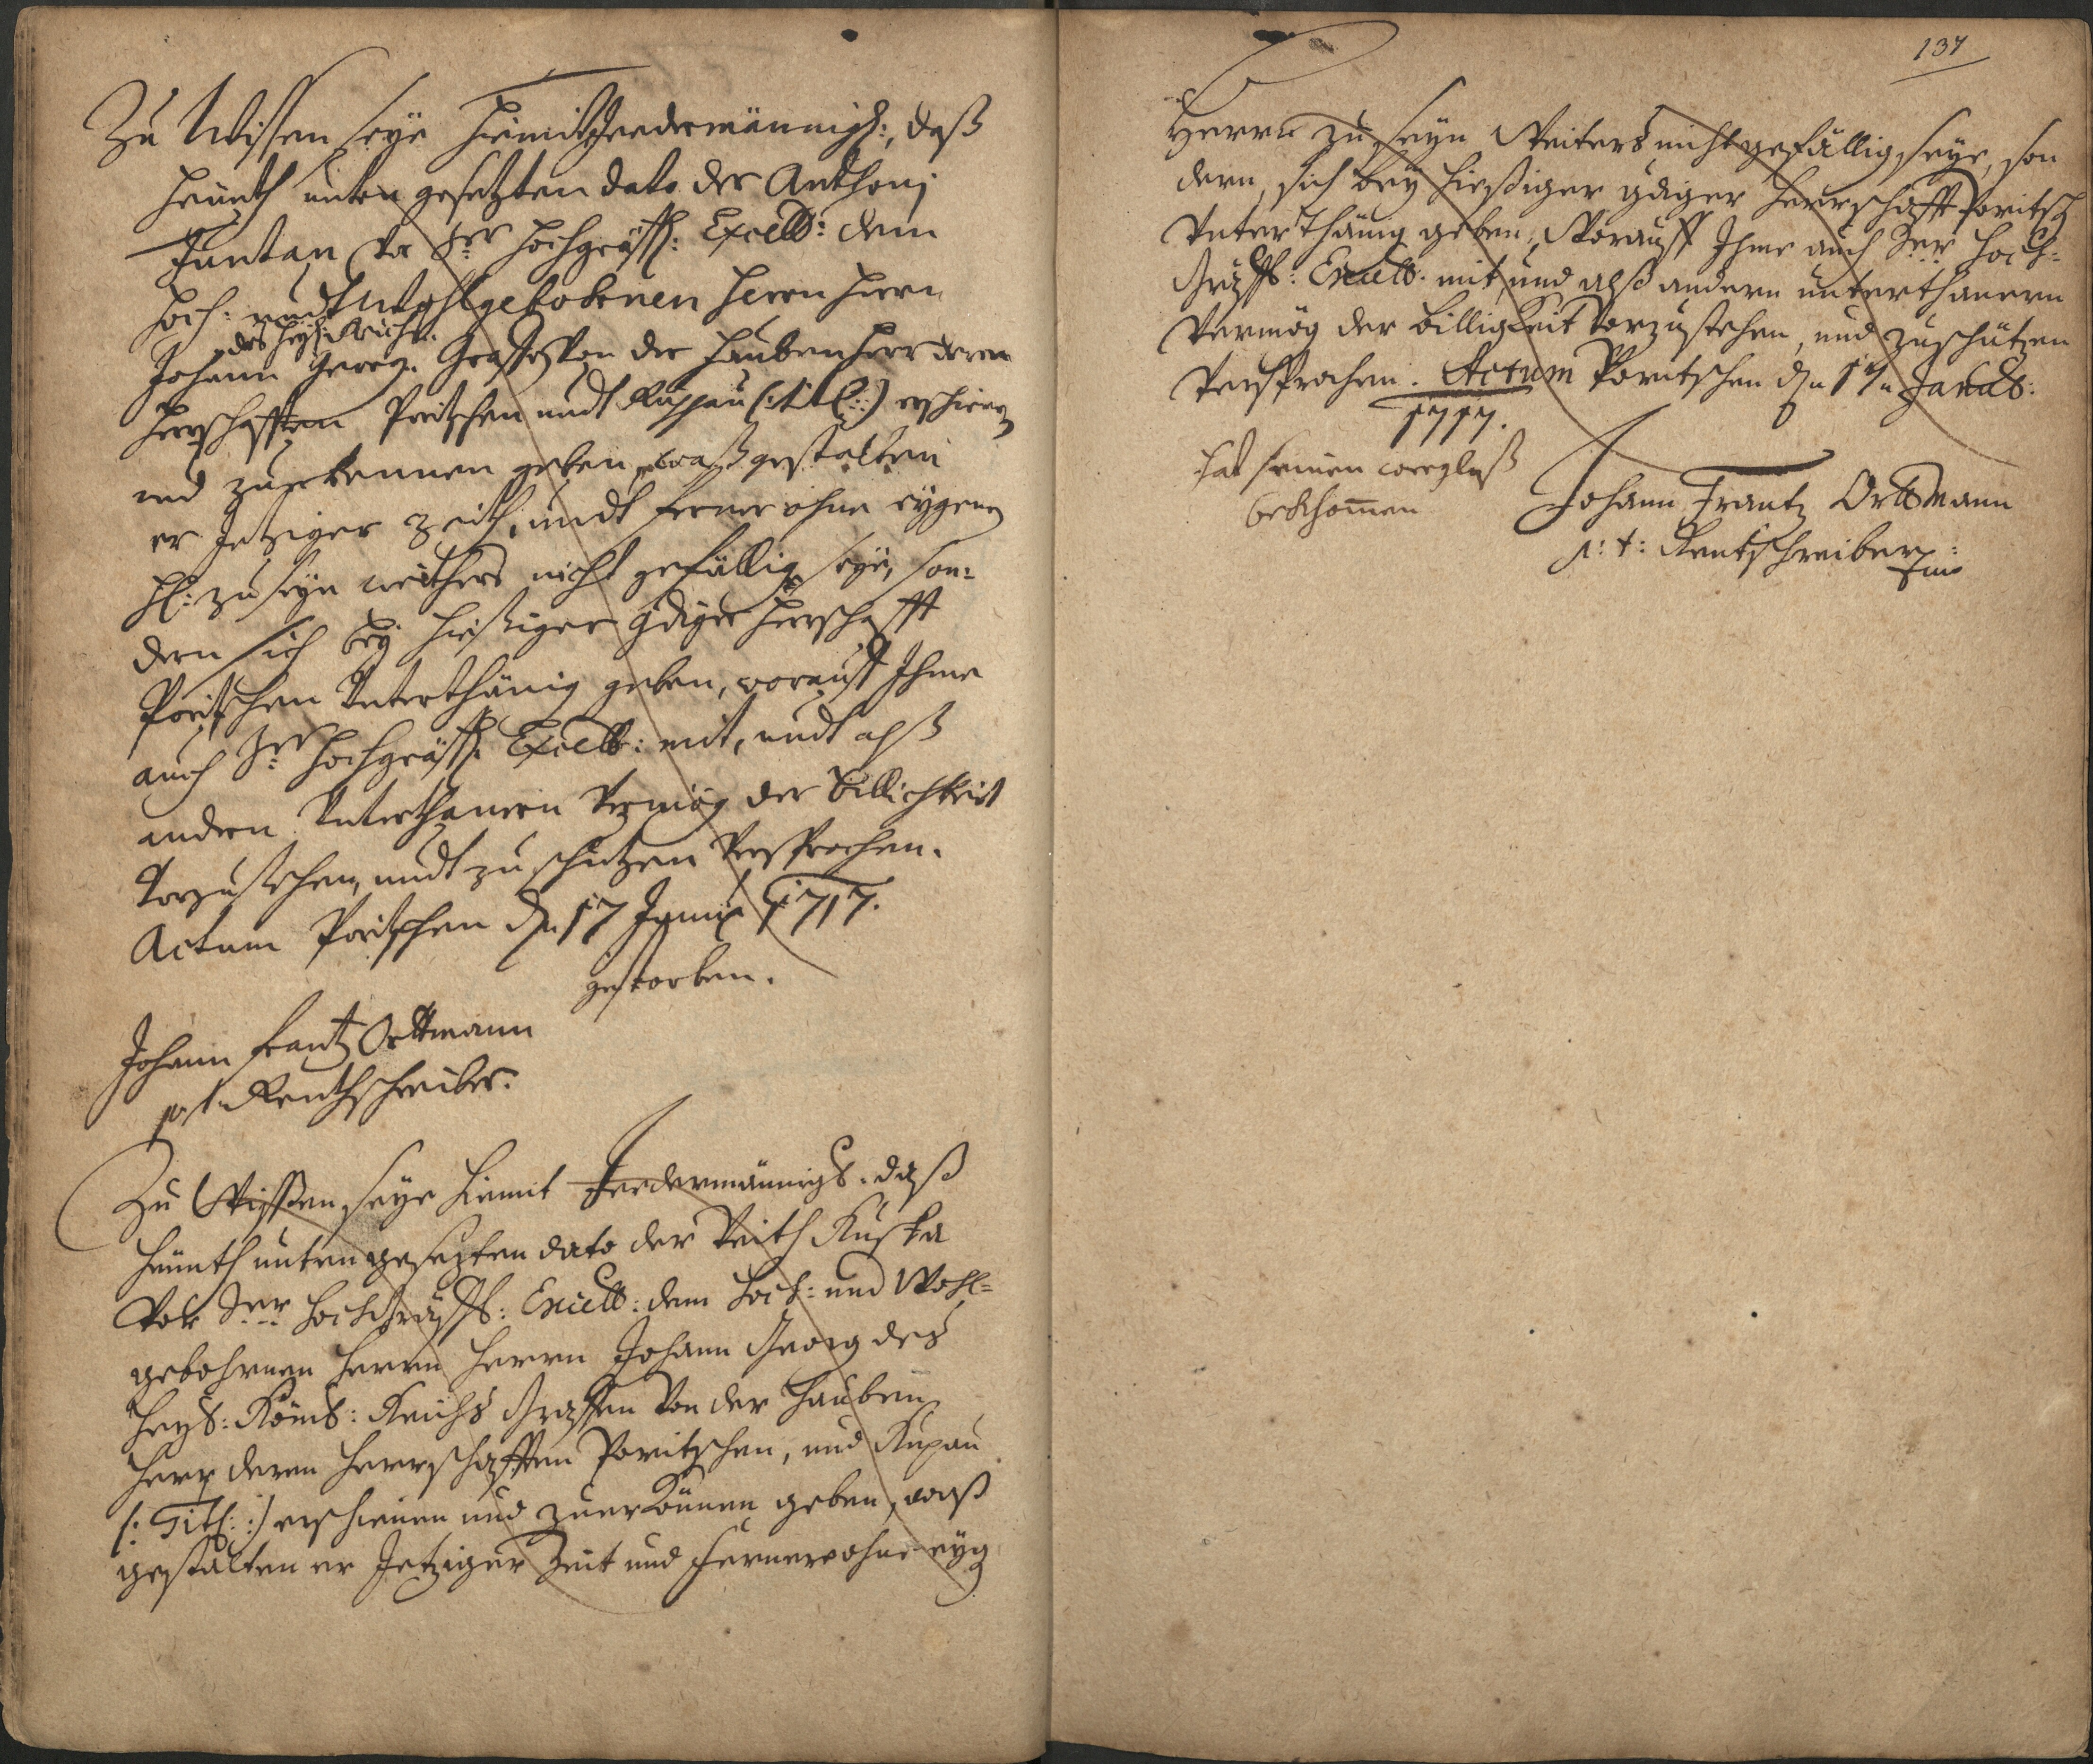 Zu Wissen seye hiemit Jeedermännigl:, daß
heunth unten gesetzten dato der Anthonj
Juntan vor Sr hochgräffl: Excell: dem
Hoch: undt Wohlgebohrnen Herrn Herrn
des heyl: Reichs
Johann Georg Graffen von der Hauben Herr deren
Herrschafften Poritschen undt Ruppau (: titl: :) erschienen
und zuerkennen geben, waß gestalten
er Jetziger Zeith, undt ferner ohne eygenen
H: zu seyn weithers nicht gefällig seye, son:
dern sich bey hießiger gdiger Herrschafft
Poritschen Unterthänig geben, worauff Ihme
auch Sr Hochgräffl: Excell: mit, undt alß
andern Unterthanern Vermög der billichkeit
Vorzustehen, undt zu schützen Versprochen.
Actum Poritschen dn 17 Januar 1717.
gestorben.
Johann Frantz Orttmann
p. t. Renthschreiber.
Zu Wissen seye hiemit Jeedermännigl. daß
heunth unten gesetzten dato der Veith Kuska
Vor Sr Hochgräffl: Excell: dem Hoch: und Wohl=
gebohrnen Herrn Herrn Johann Georg des
Heyl: Röml: Reichs Graffen Von der Hauben
Herr deren Herrschafften Poritschen, und Rupau
(: Titl: :) erschienen und zuerkönnen geben, waß
gestalten er Jetziger Zeit und ferner ohne eyg
137
Herrn zu seyn Weiters nicht gefällig seye, son
dern, sich bey hießiger gdiger Herrschafft Poritsch
Unterthänig geben, Worauff Ihme auch Sr Hoch=
Gräffl: Excell: mit, und alß andern unterthanern
Vermög der billigkeit Vorzustehen, und zuschützen
Versprochen. Actum Poritschen dn 17n
1717.
hat seinen
bekhommen
Johann Frantz Orttmann
p: t: Rentschreiber